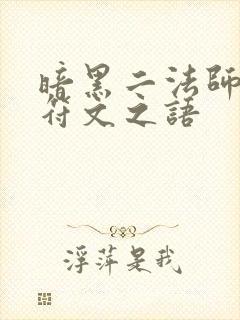 暗黑二法師
符文之語
浮萍是我